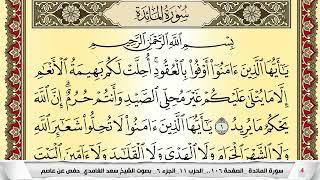 سورة المائدة
بِسْمِ اللَّهِ الرَّحْمَٰنِ الرَّحِيمِ
يَا أَيُّهَا الَّذِينَ ءَامَنُوا أَوْفُوا بِالْعُقُودِ أُحِلَّتْ لَكُم بَهِيمَةُ الْأَنْعَامِ
إِلَّا مَا يُتْلَىٰ عَلَيْكُمْ غَيْرَ مُحِلِّي الصَّيْدِ وَأَنتُمْ حُرُمٌ إِنَّ اللَّهَ
يَحْكُمُ مَا يُرِيدُ ١ يَا أَيُّهَا الَّذِينَ ءَامَنُوا لَا تُحِلُّوا شَعَائِرَ اللَّهِ
وَلَا الشَّهْرَ الْحَرَامَ وَلَا الْهَدْيَ وَلَا الْقَلَائِدَ وَلَا
4 سورة المائدة .. الصفحة ١٠٦ .. الحزب ١١ .. الجزء ٦ .. بصوت الشيخ سعد الغامدي .. حفص عن عاصم